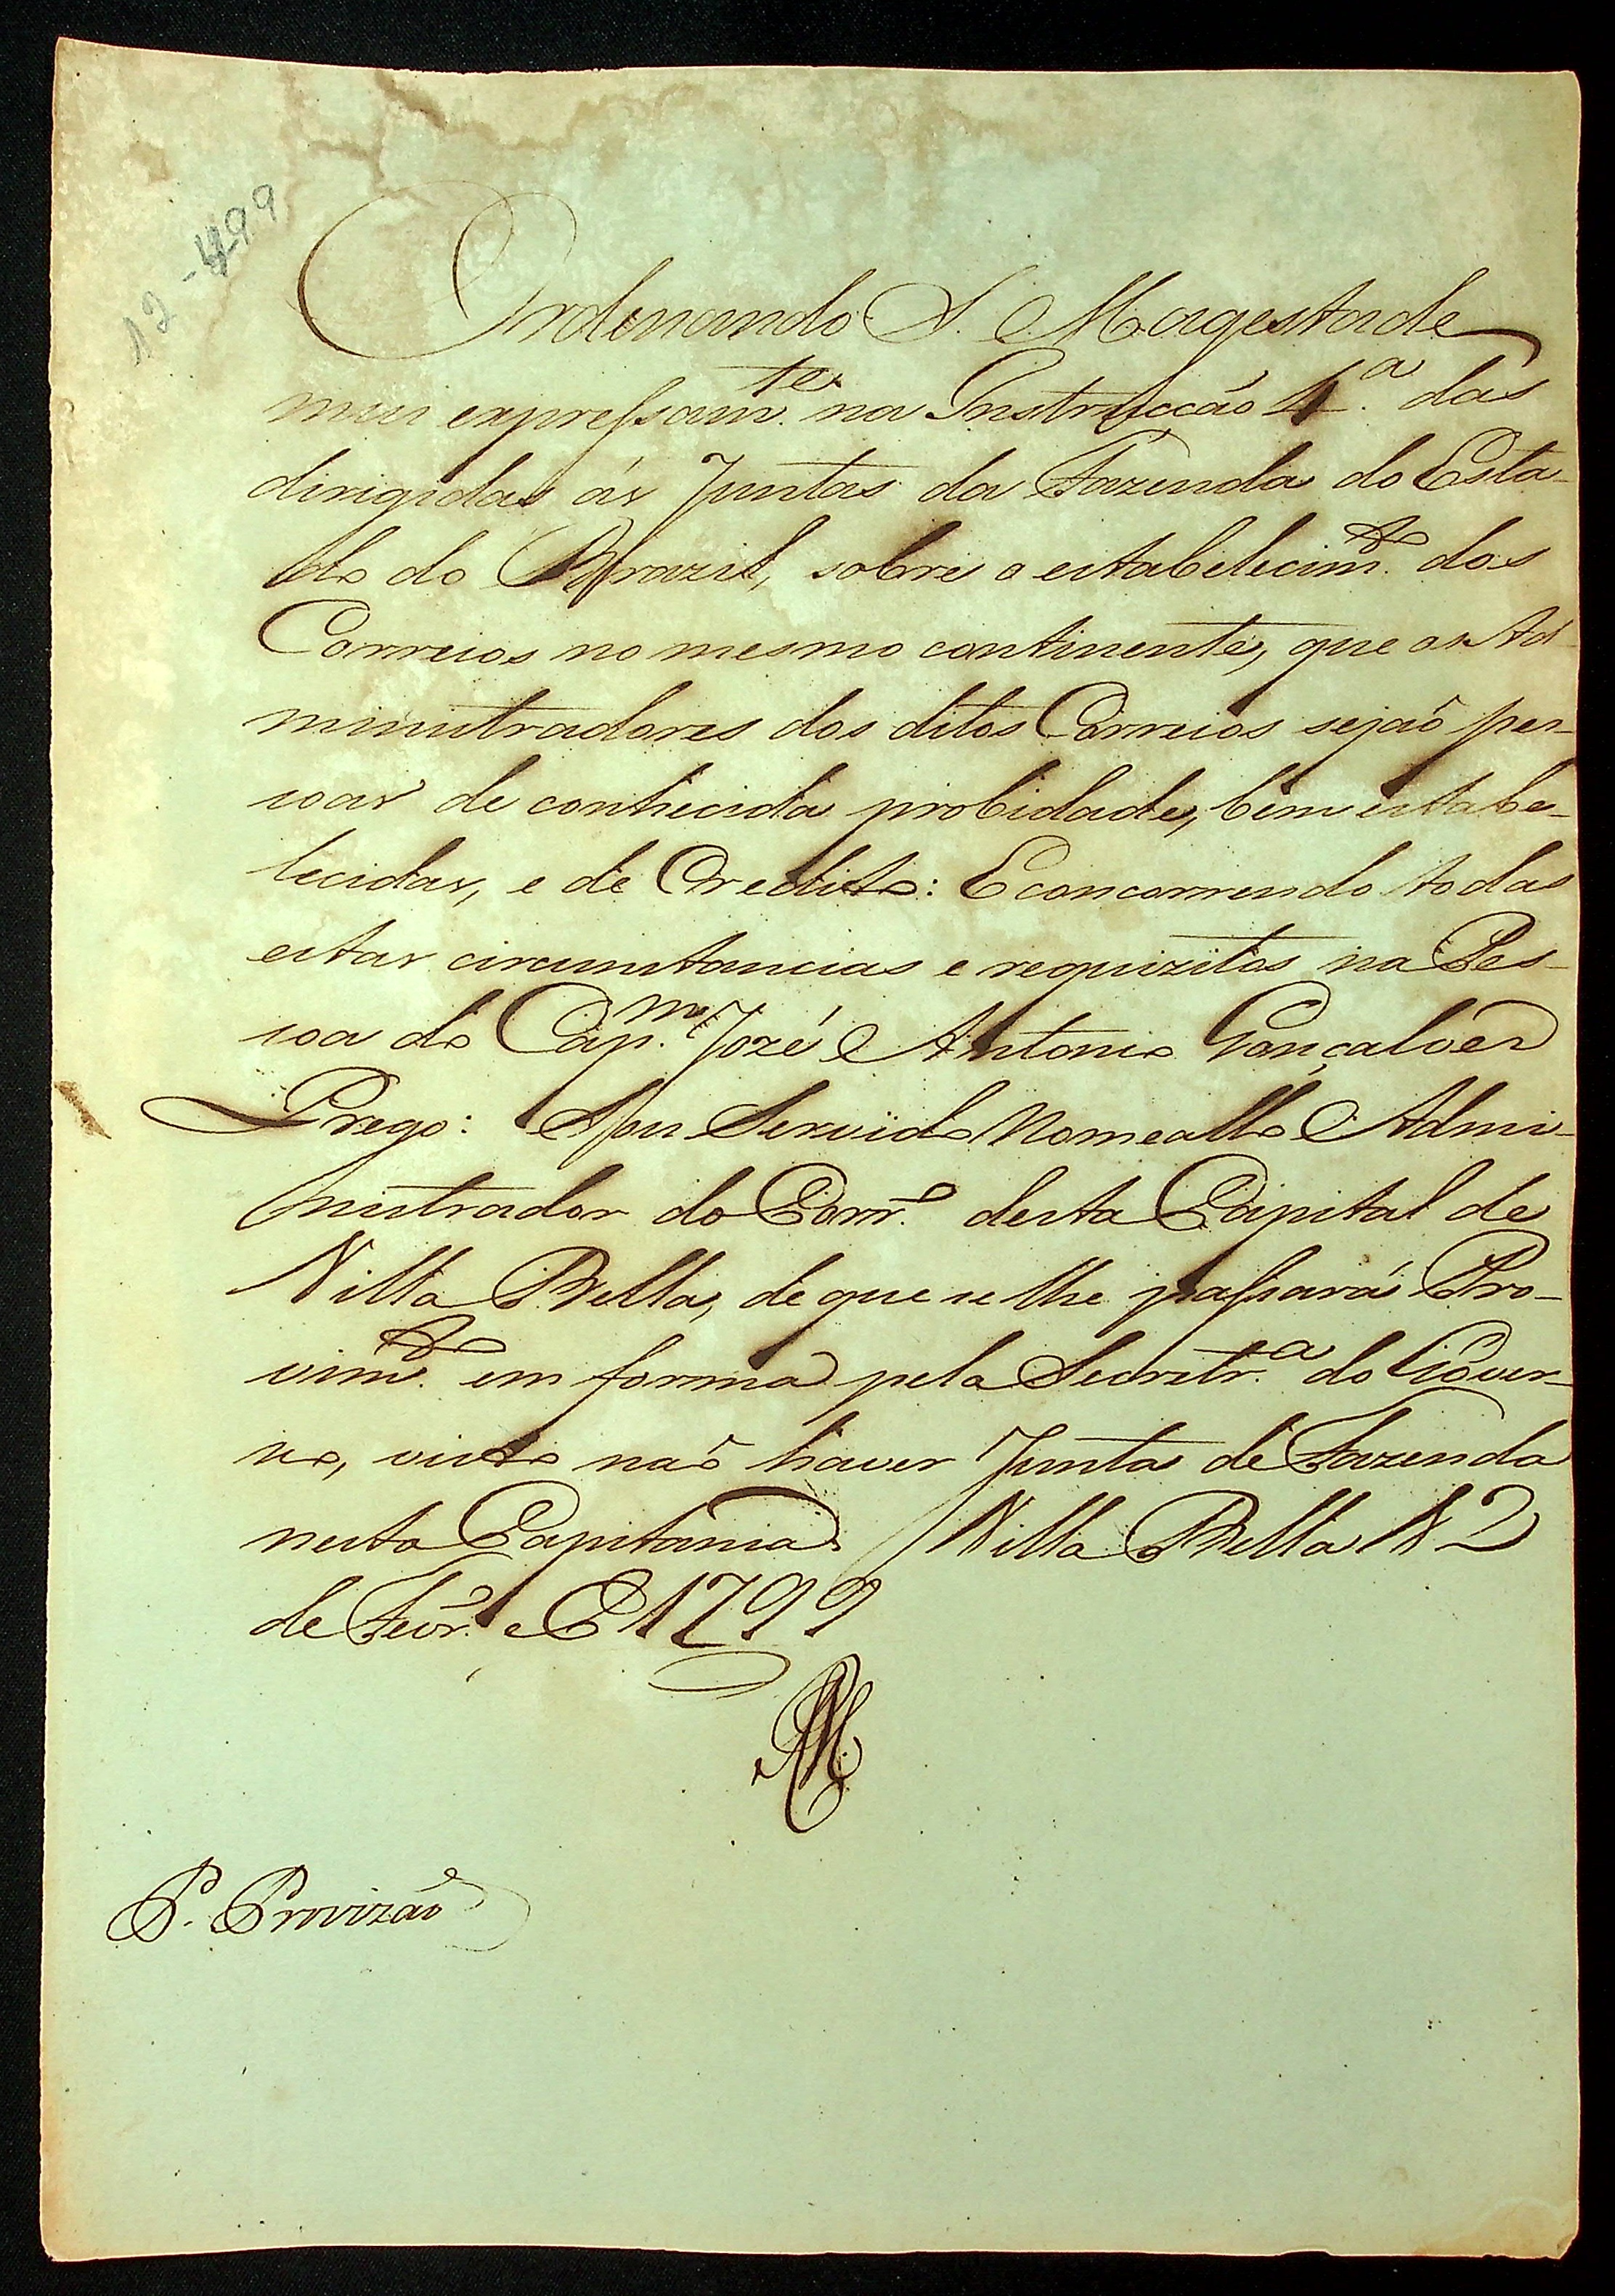 12-499
Ordenando S. Magestade
mui expressam.te na Instrucção 1.a das
dirigidas ás Juntas da Fazenda do Esta-
do do Brazil, sobre o estabelecim.to dos
Correios no mesmo continente, que os Ad-
ministradores dos ditos Correios sejaõ pes-
soas de conhecida probidade, bem estabe-
lecidas, e de Credito: E concorrendo todas
estas circunstancias e requizitos na Pes-
soa do Cap.m Jozé Antonio Gonçalves
Prego: Sou Servido Nomeallo Admi-
nistrador do Corr.o desta Capital de
Villa Bella, de que se lhe passará Pro-
vim.to em forma pela Secretr.a do Gover-
no, visto naõ haver Junta de Fazenda
nesta Capitania. Villa Bella 12
de Fevr.o de 1799
P. Provizaõ